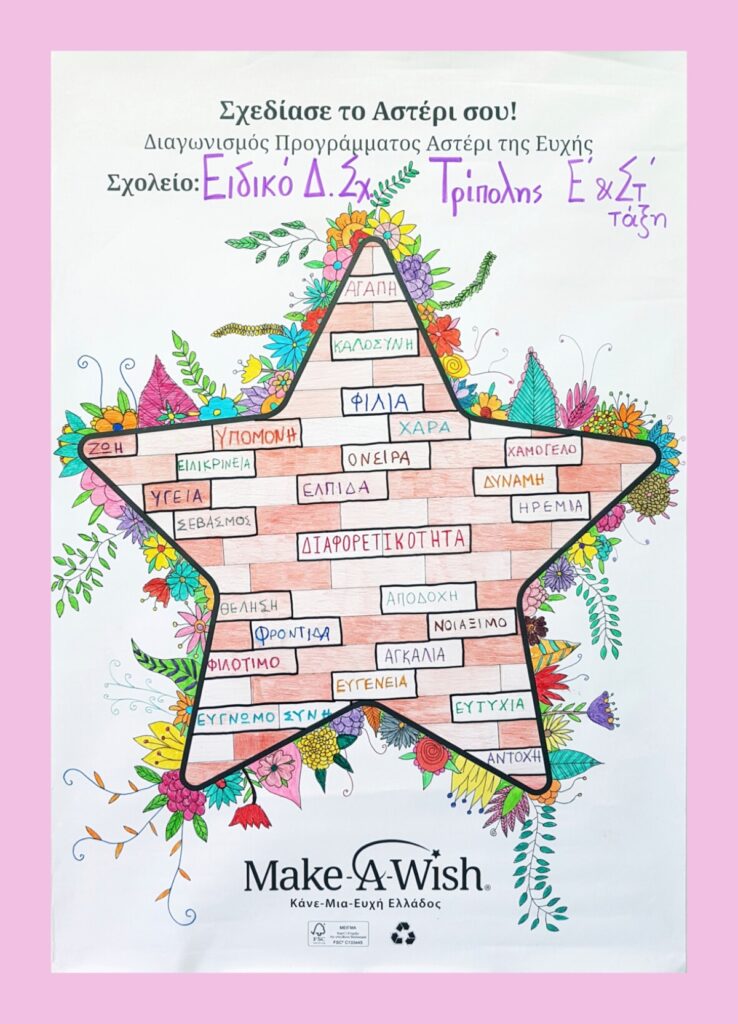 Σχεδίασε το Αστέρι σου!
Διαγωνισμός Προγράμματος Αστέρι της Ευχής
Σχολείο: Ειδικό Δ. Σχ. Τρίπολης Ε΄ & Στ΄
τάξη
ΑΓΑΠΗ
ΚΑΛΟΣΥΝΗ
ΦΙΛΙΑ
ΧΑΡΑ
ΖΩΗ
ΥΠΟΜΟΝΗ
ΧΑΜΟΓΕΛΟ
ΕΙΛΙΚΡΙΝΕΙΑ
ΟΝΕΙΡΑ
ΥΓΕΙΑ
ΕΛΠΙΔΑ
ΔΥΝΑΜΗ
ΣΕΒΑΣΜΟΣ
ΗΡΕΜΙΑ
ΔΙΑΦΟΡΕΤΙΚΟΤΗΤΑ
ΘΕΛΗΣΗ
ΑΠΟΔΟΧΗ
ΦΡΟΝΤΙΔΑ
ΝΟΙΑΞΙΜΟ
ΦΙΛΟΤΙΜΟ
ΑΓΚΑΛΙΑ
ΕΥΓΕΝΕΙΑ
ΕΥΓΝΩΜΟΣΥΝΗ
ΕΥΤΥΧΙΑ
ΑΝΤΟΧΗ
Make-A-Wish®
Κάνε-Μια-Ευχή Ελλάδος
FSC
ΜΕΙΓΜΑ